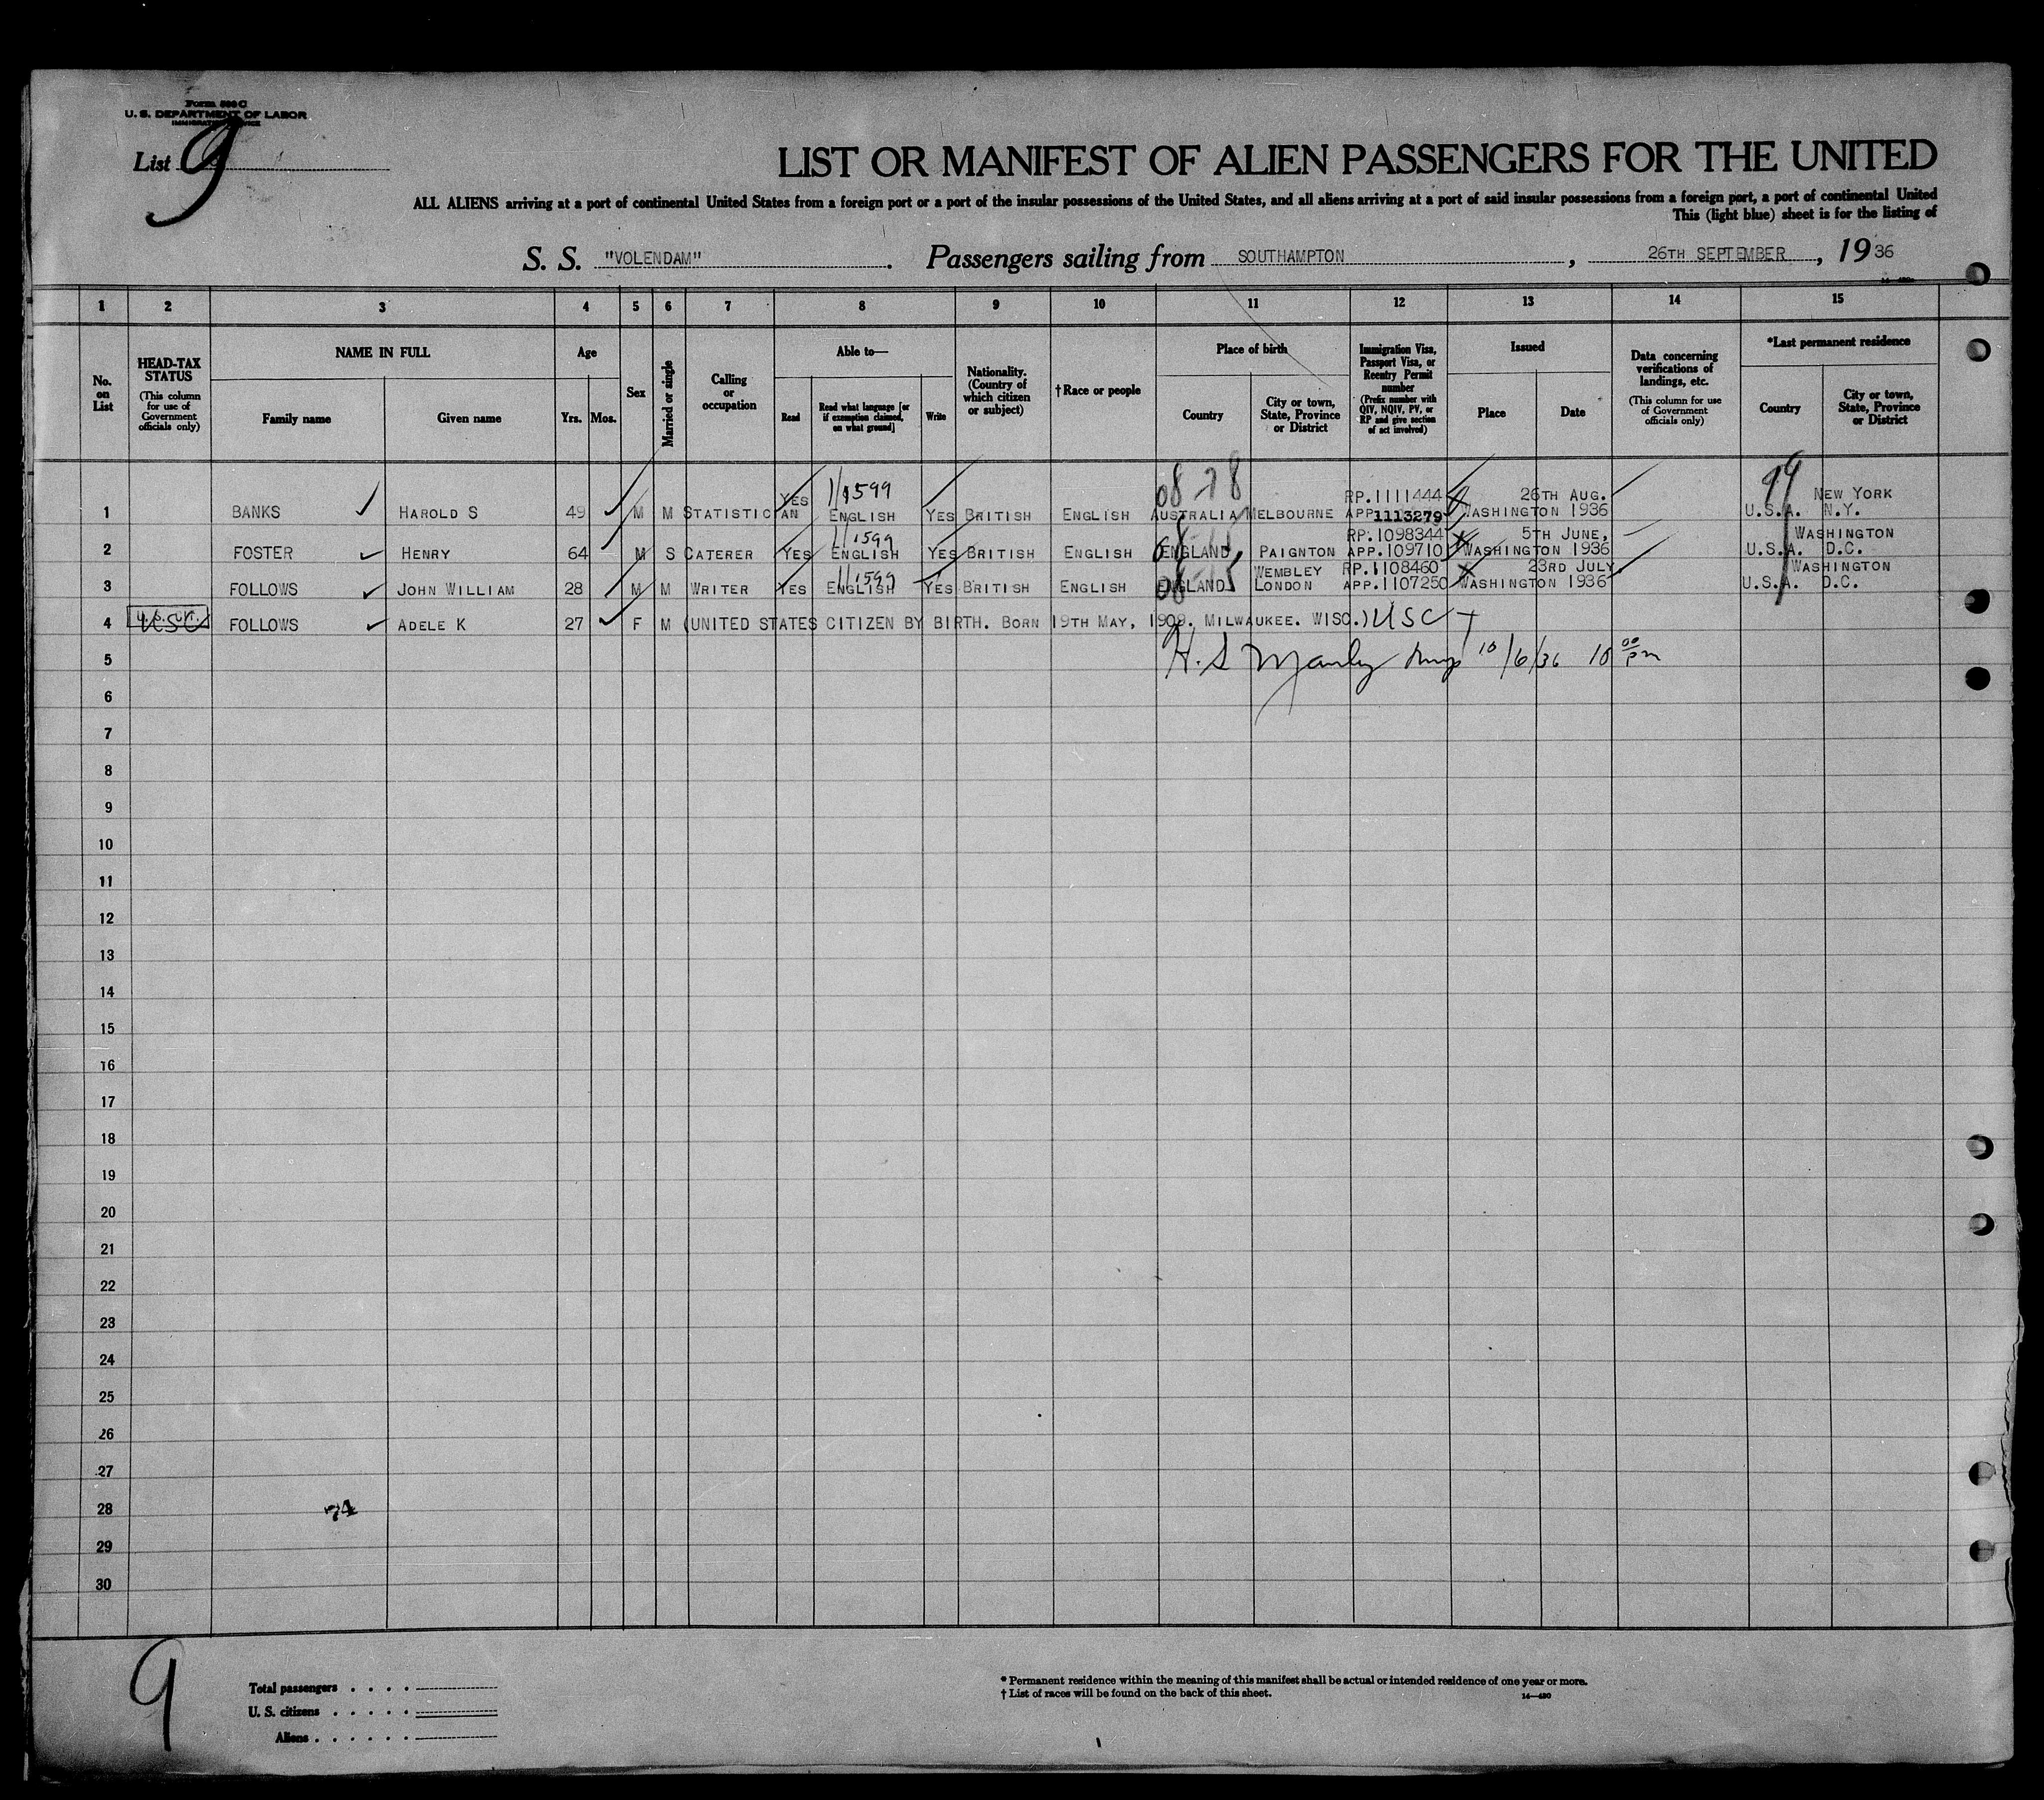 Form 500 C
U. S. DEPARTMENT OF LABOR
List 9
LIST OR MANIFEST OF ALIEN PASSENGERS FOR THE UNITED
ALL ALIENS arriving at a port of continental United States from a foreign port or a port of the insular possessions of the United States, and all aliens arriving at a port of said insular possessions from a foreign port, a port of continental United
This (light blue) sheet is for the listing of
S. S. "VOLENDAM". Passengers sailing from SOUTHAMPTON, 26TH SEPTEMBER, 1936
1 2 3 4 5 6 7 8 9 10 11 12 13 14 15
No. on List
HEAD-TAX STATUS
(This column for use of Government officials only)
NAME IN FULL
Family name
Given name
Age
Yrs. Mos.
Sex
Married or single
Calling or occupation
Able to—
Read
Read what language [or if exemption claimed, on what ground]
Write
Nationality. (Country of which citizen or subject)
† Race or people
Place of birth
Country
City or town, State, Province or District
Immigration Visa, Passport Visa, or Reentry Permit number
(Prefix number with QIV, NQIV, PV, or RP and give section of act involved)
Issued
Place
Date
Data concerning verifications of landings, etc.
(This column for use of Government officials only)
*Last permanent residence
Country
City or town, State, Province or District
YES 1/1599 08-78 RP.1111444 26TH AUG. 99 NEW YORK
1 BANKS HAROLD S 49 M M STATISTICIAN ENGLISH YES BRITISH ENGLISH AUSTRALIA MELBOURNE APP 1113279 WASHINGTON 1936 U.S.A. N.Y.
1/1599 RP.1098344 5TH JUNE, WASHINGTON
2 FOSTER HENRY 64 M S CATERER YES ENGLISH YES BRITISH ENGLISH ENGLAND PAIGNTON APP.109710 WASHINGTON 1936 U.S.A. D.C.
1/1599 WEMBLEY RP.1108460 23RD JULY, WASHINGTON
3 FOLLOWS JOHN WILLIAM 28 M M WRITER YES ENGLISH YES BRITISH ENGLISH ENGLAND LONDON APP.1107250 WASHINGTON 1936 U.S.A. D.C.
4 USC FOLLOWS ADELE K 27 F M (UNITED STATES CITIZEN BY BIRTH. BORN 19TH MAY, 1909. MILWAUKEE. WISC.) USC
5 H. S Manley Insp 10/6/36 10 00 pm
6
7
8
9
10
11
12
13
14
15
16
17
18
19
20
21
22
23
24
25
26
27
28
29
30
74
9
Total passengers
U. S. citizens
Aliens
* Permanent residence within the meaning of this manifest shall be actual or intended residence of one year or more.
† List of races will be found on the back of this sheet.
14—480